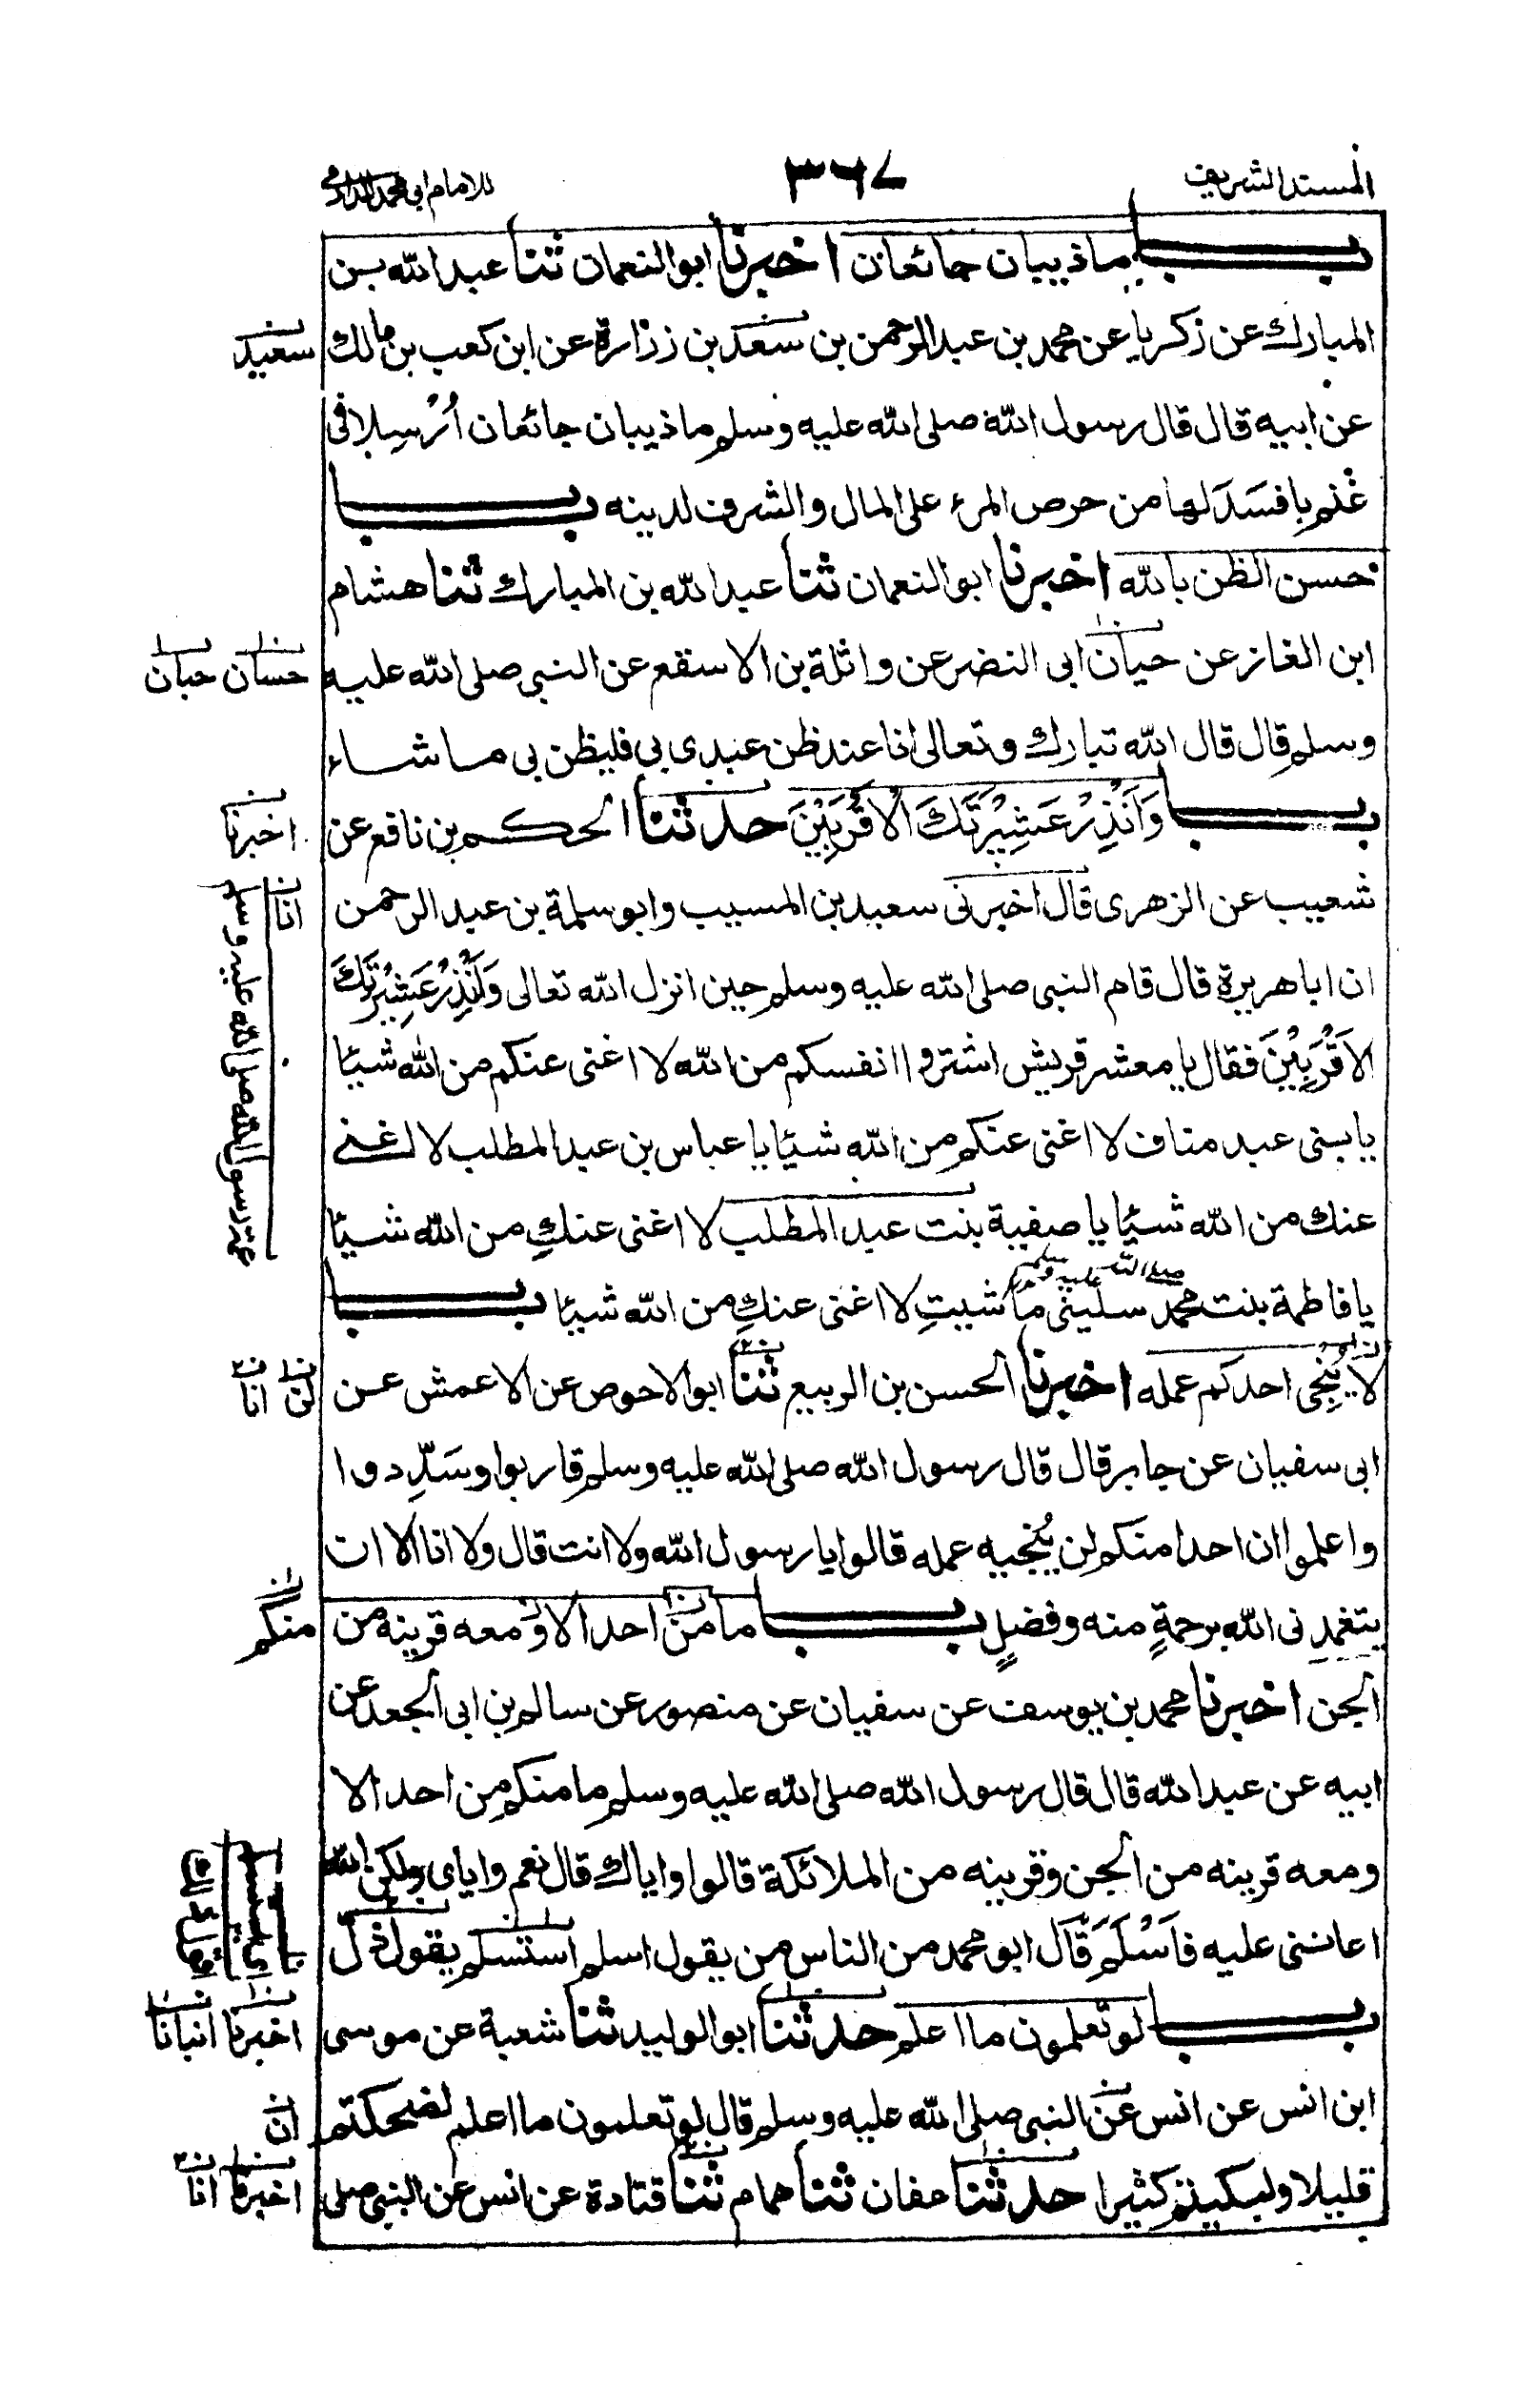 المسند الشريف
٣٦٧
للامام ابی محمد الدارمی
باب ما ذئبان جائعان اخبرنا ابو النعمان ثنا عبد الله بن
المبارك عن زكريا عن محمد بن عبد الرحمن بن سعد بن زرارة عن ابن كعب بن مالك
سعيد
عن ابيه قال قال رسول الله صلى الله عليه وسلم ما ذيبان جائعان اُرْسِلا فی
غنم بافسَدَ لها من حرص المرء علی المال والشرف لدينه باب
حسن الظن بالله اخبرنا ابو النعمان ثنا عبد الله بن المبارك ثنا هشام
ابن الغاز عن حيان ابی النضر عن واثلة بن الاسقع عن النبی صلى الله عليه
حسان حبان
وسلم قال قال الله تبارك وتعالى انا عند ظن عبدی بی فليظن بی ما شاء
باب وَاَنْذِرْ عَشِيْرَتَكَ الْاَقْرَبِيْنَ حدثنا الحكم بن نافع عن
اخبرنا
شعيب عن الزهری قال اخبرنی سعيد بن المسيب وابو سلمة بن عبد الرحمن
انا
ان ابا هريرة قال قام النبی صلى الله عليه وسلم حين انزل الله تعالى وَاَنْذِرْ عَشِيْرَتَكَ
الْاَقْرَبِيْنَ فقال يا معشر قريش اشتروا انفسكم من الله لا اغنی عنكم من الله شيئا
يا بنی عبد مناف لا اغنی عنكم من الله شيئا يا عباس بن عبد المطلب لا اغنے
عنك من الله شيئا يا صفية بنت عبد المطلب لا اغنی عنكِ من الله شيئا
عمة رسول الله صلى الله عليه وسلم
يا فاطمة بنت محمد صلى الله عليه وسلم سلينی ما شيتِ لا اغنی عنكِ من الله شيئا باب
لا يُنْجِی احدكم عمله اخبرنا الحسن بن الربيع ثنا ابو الاحوص عن الاعمش عن
لن انا
ابی سفيان عن جابر قال قال رسول الله صلى الله عليه وسلم قاربوا وسَدِّدوا
واعلموا ان احدا منكم لن يُنْجيه عمله قالوا يا رسول الله ولا انت قال ولا انا الا ان
يتغمدنی الله برحمةٍ منه وفضلٍ باب ما من احد الا و معه قرينه من
منكم
الجن اخبرنا محمد بن يوسف عن سفيان عن منصور عن سالم بن ابی الجعد عن
ابيه عن عبد الله قال قال رسول الله صلى الله عليه وسلم ما منكم من احد الا
ومعه قرينه من الجن وقرينه من الملائكة قالوا واياك قال نعم وايای ولكن الله
اعاننی عليه فَاَسْلَمَ قال ابو محمد من الناس من يقول اسلم استسلم يقول ذل
باب لو تعلمون ما اعلم حدثنا ابو الوليد ثنا شعبة عن موسى
اخبرنا انبانا
ابن انس عن انس عن النبی صلى الله عليه وسلم قال لو تعلمون ما اعلم لضحكتم
ان
قليلا ولبكيتم كثيرا حدثنا عفان ثنا همام ثنا قتادة عن انس عن النبی صلى
اخبرنا انا